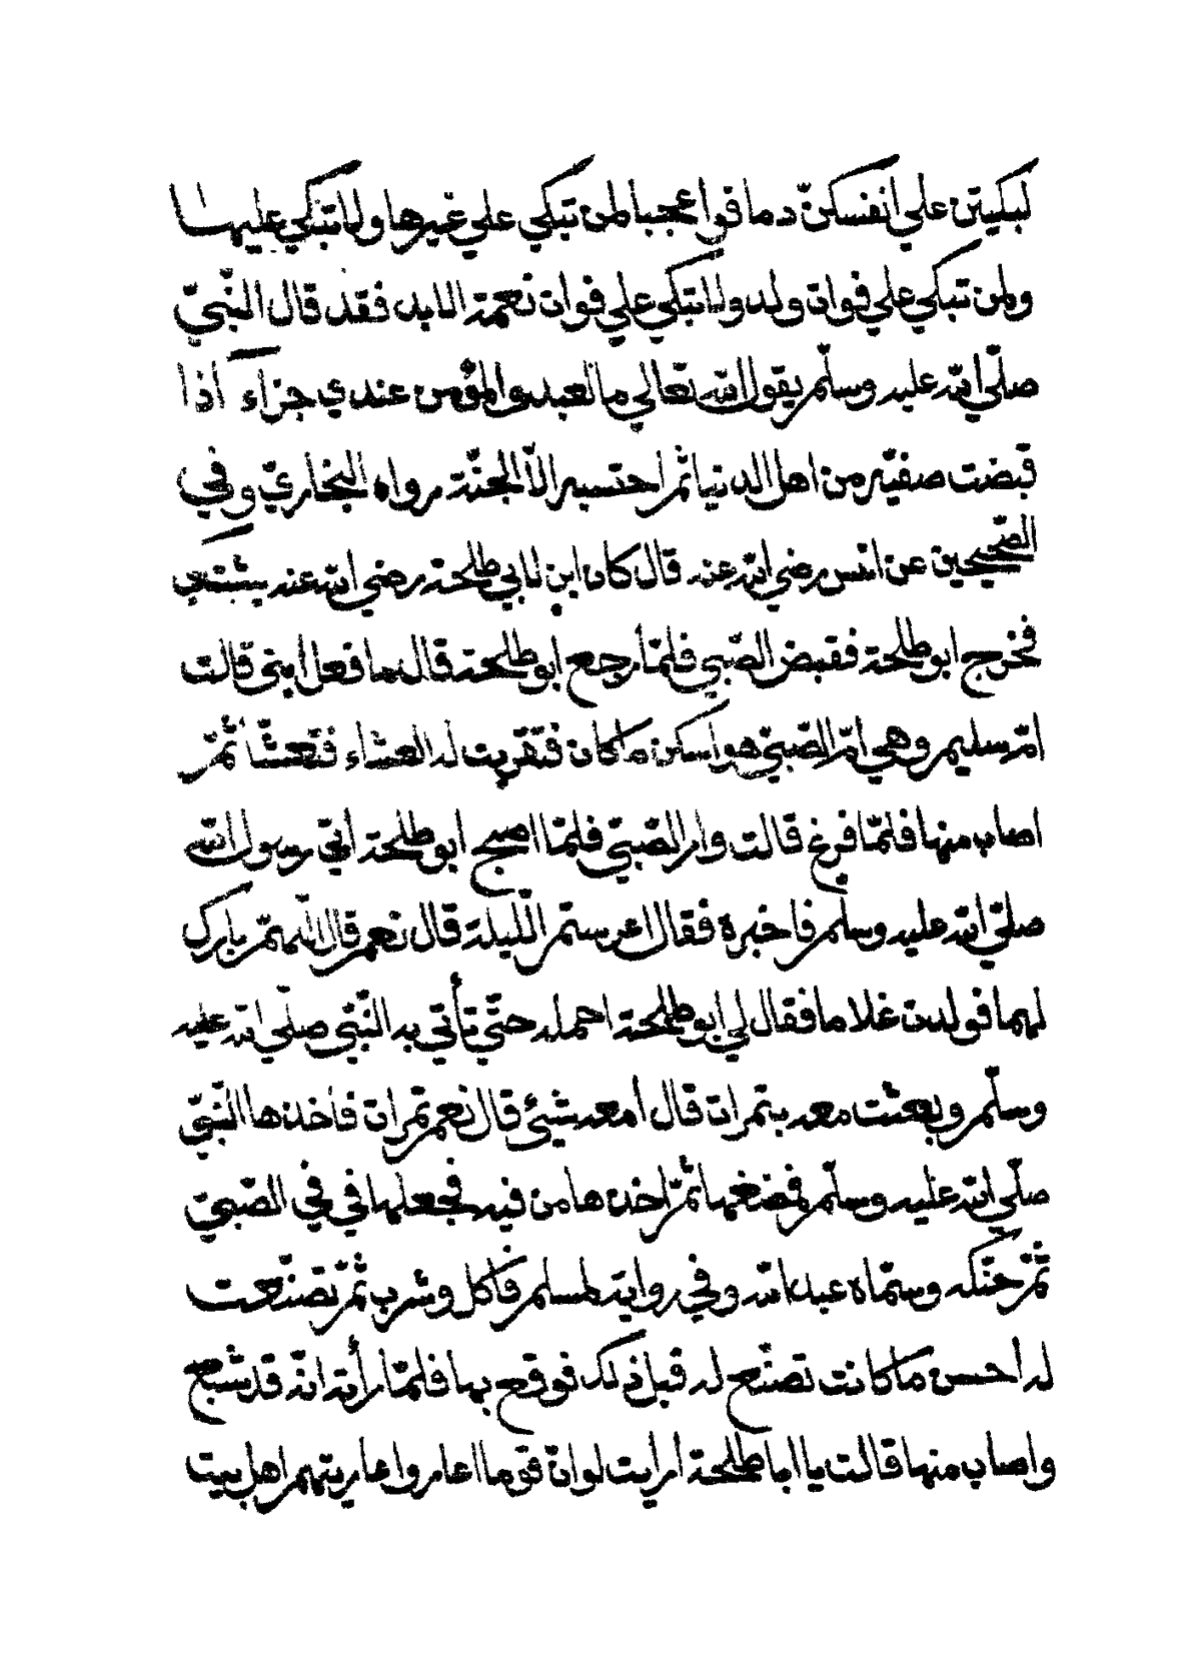 لبكيتن علي انفسكنّ دما قوا عجبا لمن تبكي علي غيرها ولا تبكي عليها
ولمن تبكي علي فوات ولد ولا تبكي علي فوات نعمة الابد فقد قال النّبيّ
صلّي الله عليه وسلّم يقول الله تعالي ما لعبدي المؤمن عندي جزاء اذا
قبضت صفيّه من اهل الدنيا ثم احتسبه الاّ الجنّة رواه البخاريّ وفي
الصّحيحين عن انس رضي الله عنه قال كان ابن لابي طلحة رضي الله عنه يشتكي
فخرج ابو طلحة فقبض الصّبي فلمّا رجع ابو طلحة قال ما فعل ابني قالت
امّ سليم وهي امّ الصّبيّ هو اسكن ما كان فقربت له العشاء فتعشّا ثمّ
اصاب منها فلمّا فرغ قالت وار الصّبيّ فلمّا اصبح ابو طلحة اتي رسول الله
صلّي الله عليه وسلّم فاخبره فقال اعرستم اللّيلة قال نعم قال اللّهمّ بارك
لهما فولدت غلاما فقال لي ابو طلحة احمله حتّي تأتي به النّبّي صلّي الله عليه
وسلّم وبعثت معه بتمرات قال أمعه شيئ قال نعم تمرات فاخذها النّبيّ
صلّي الله عليه وسلّم فمضغها ثمّ اخذها من فيه فجعلها في في الصّبيّ
ثمّ حنّكه وسمّاه عبد الله وفي رواية لمسلم فاكل وشرب ثمّ تصنّعت
له أحسن ما كانت تصنّع له قبل ذلك فوقع بها فلمّا رأته انّه قد شبع
واصاب منها قالت يا ابا طلحة ارايت لو انّ قوما اعاروا عاريتهم اهل بيت